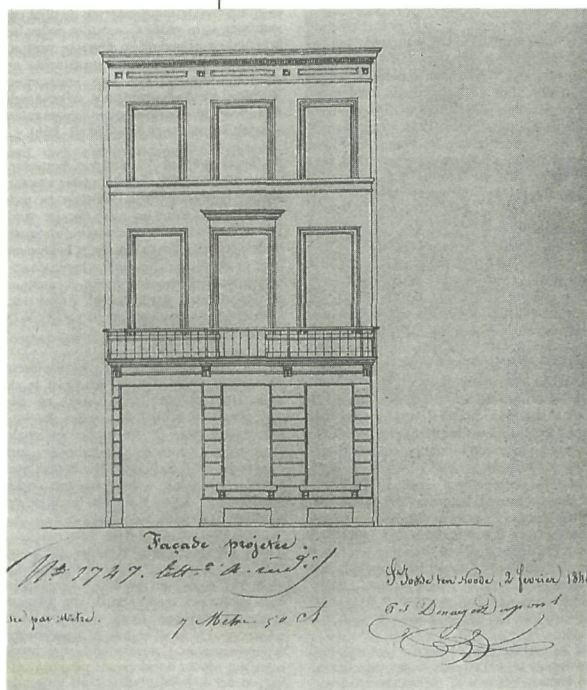 Façade projetée.
N° 1747. litt.
St Josse ten Noode, 2 février 184
par Mètre.
7 Metr 50 C